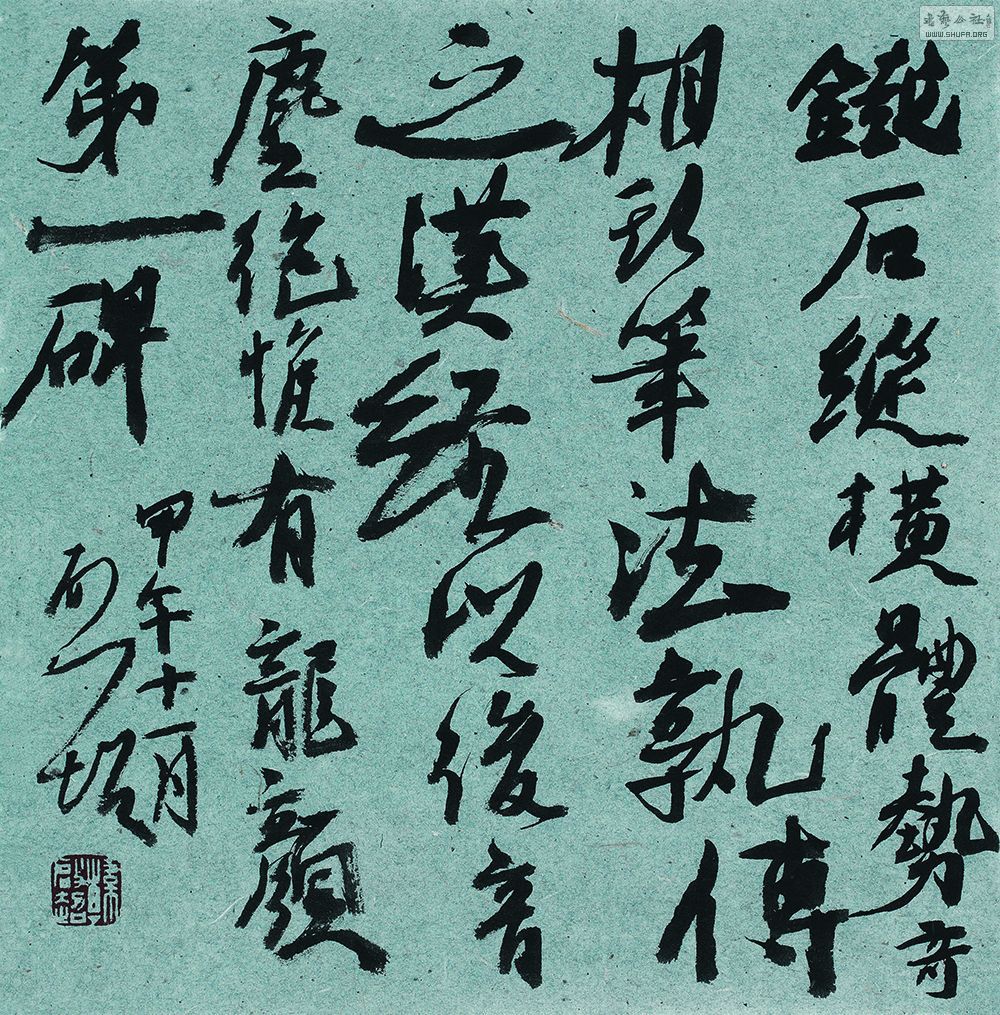 鐵石縱横體勢奇
相斯筆法孰傳
之漢經以後音
塵絶惟有龍顔
第一碑
甲午十一月
WWW.SHUFA.ORG